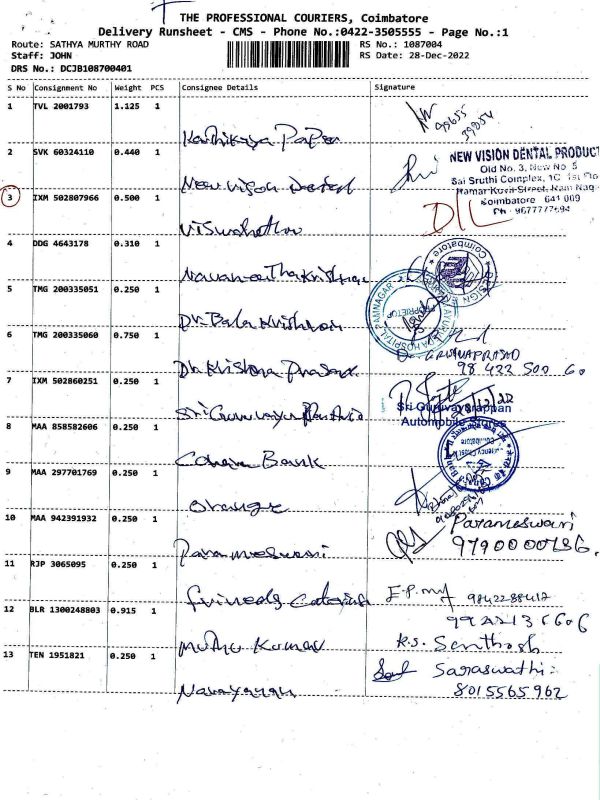 THE PROFESSIONAL COURIERS, Coimbatore
Delivery Runsheet - CMS - Phone No.:0422-3505555 - Page No.:1
Route: SATHYA MURTHY ROAD RS No.: 1087004
Staff: JOHN RS Date: 28-Dec-2022
DRS No.: DCJB108700401
S No Consignment No Weight PCS Consignee Details Signature
1 TVL 2001793 1.125 1
Karthikeya Paper 98655
59054
2 SVK 60324110 0.440 1
New Vision Dental
NEW VISION DENTAL PRODUCT
Old No. 3, New No. 5
Sai Sruthi Complex, 1C 1st Flo
Ramar Kovil Street, Ram Nag
Coimbatore 641 009
Ph - 9677777694
3 IXM 502807966 0.500 1
D/L
4 DDG 4643178 0.310 1
Navaneethakrishnan
Coimbatore
DESIGN
5 TMG 200335051 0.250 1
Dr. Bala Krishnan
HOSPITAL RAMNAGAR
PROPRIETOR
6 TMG 200335060 0.750 1
Dr. Krishna Prasad
98 422 500 60
7 IXM 502860251 0.250 1
28/12/22
Sri Guruvayurappan
Automobile Stores
8 MAA 858582606 0.250 1
Canara Bank
Coimbatore
9 MAA 297701769 0.250 1
Orange
10 MAA 942391932 0.250 1
Parameswari
Parameswari
9790000136
11 RJP 3065095 0.250 1
Friends Catering
9842288412
12 BLR 1300248803 0.915 1
Muthu Kumar
K.S. Santhosh
13 TEN 1951821 0.250 1
Narayanan
Saraswathi
8015565962